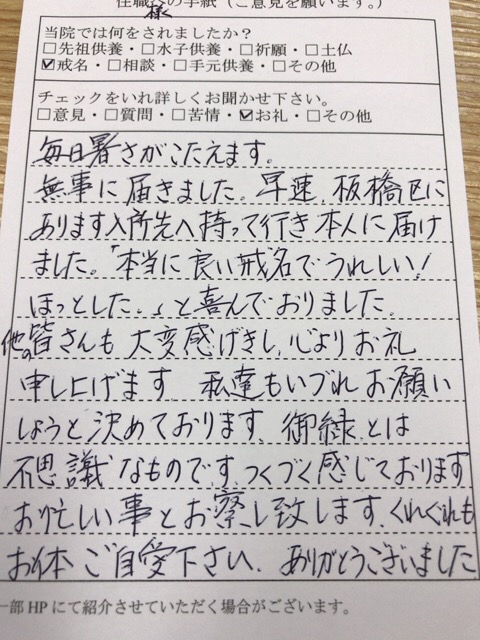 住職様への手紙(ご意見を願います。)
当院では何をされましたか?
□先祖供養・□水子供養・□祈願・□土仏
☑戒名・□相談・□手元供養・□その他
チェックをいれ詳しくお聞かせ下さい。
□意見・□質問・□苦情・☑お礼・□その他
毎日暑さがこたえます。
無事に届きました。早速、板橋区に
あります入所先へ持って行き本人に届け
ました。「本当に良い戒名でうれしい!
ほっとした。」と喜んでおりました。
他の皆さんも大変感げきし、心よりお礼
申し上げます 私達もいづれお願い
しようと決めております、御縁とは
不思議なものです、つくづく感じております
お忙しい事とお察し致します、くれぐれも
お体ご自愛下さい、ありがとうございました
一部HPにて紹介させていただく場合がございます。